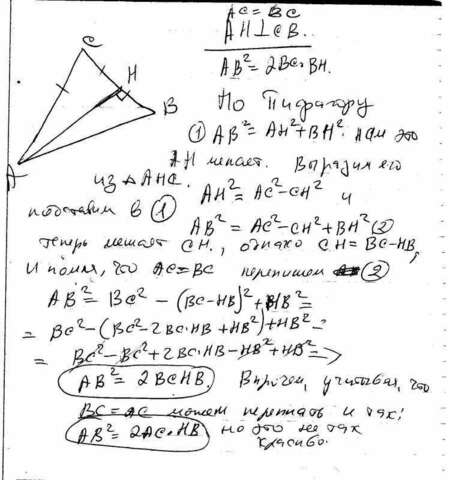 AC = BC
AH⊥CB.
AB² = 2BC·BH.
C
H
B
A
По Пифагору
① AB² = AH² + BH². Нам это
AH мешает. Выразим его
из △AHC.
AH² = AC² - CH² и
подставим в ①
AB² = AC² - CH² + BH² ②
теперь мешает CH., однако CH = BC - HB,
и помня, что AC = BC перепишем ②
AB² = BC² - (BC - HB)² + HB² =
= BC² - (BC² - 2BC·HB + HB²) + HB² =
= BC² - BC² + 2BC·HB - HB² + HB² =>
AB² = 2BC·HB. Впрочем, учитывая, что
BC = AC можем переписать и так:
AB² = 2AC·HB но это не так
красиво.